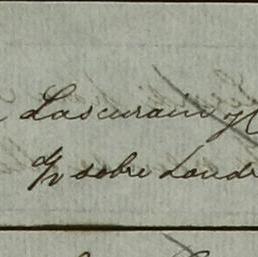 Lascurain y C
G/ sobre Londr